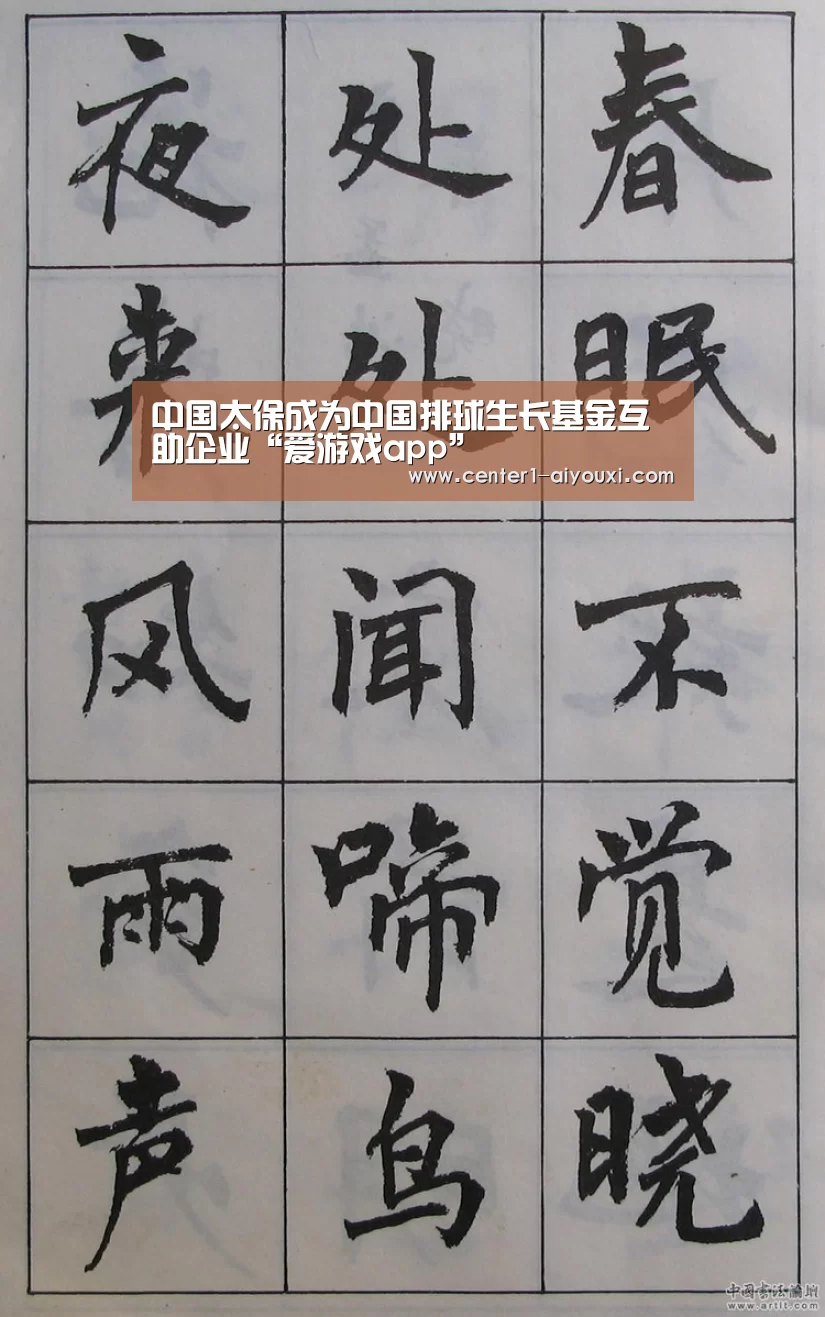 春眠不觉晓
处处闻啼鸟
夜来风雨声
中国太保成为中国排球生长基金互
助企业“爱游戏app”
www.center1-aiyouxi.com
中国书法论坛
www.artlt.com